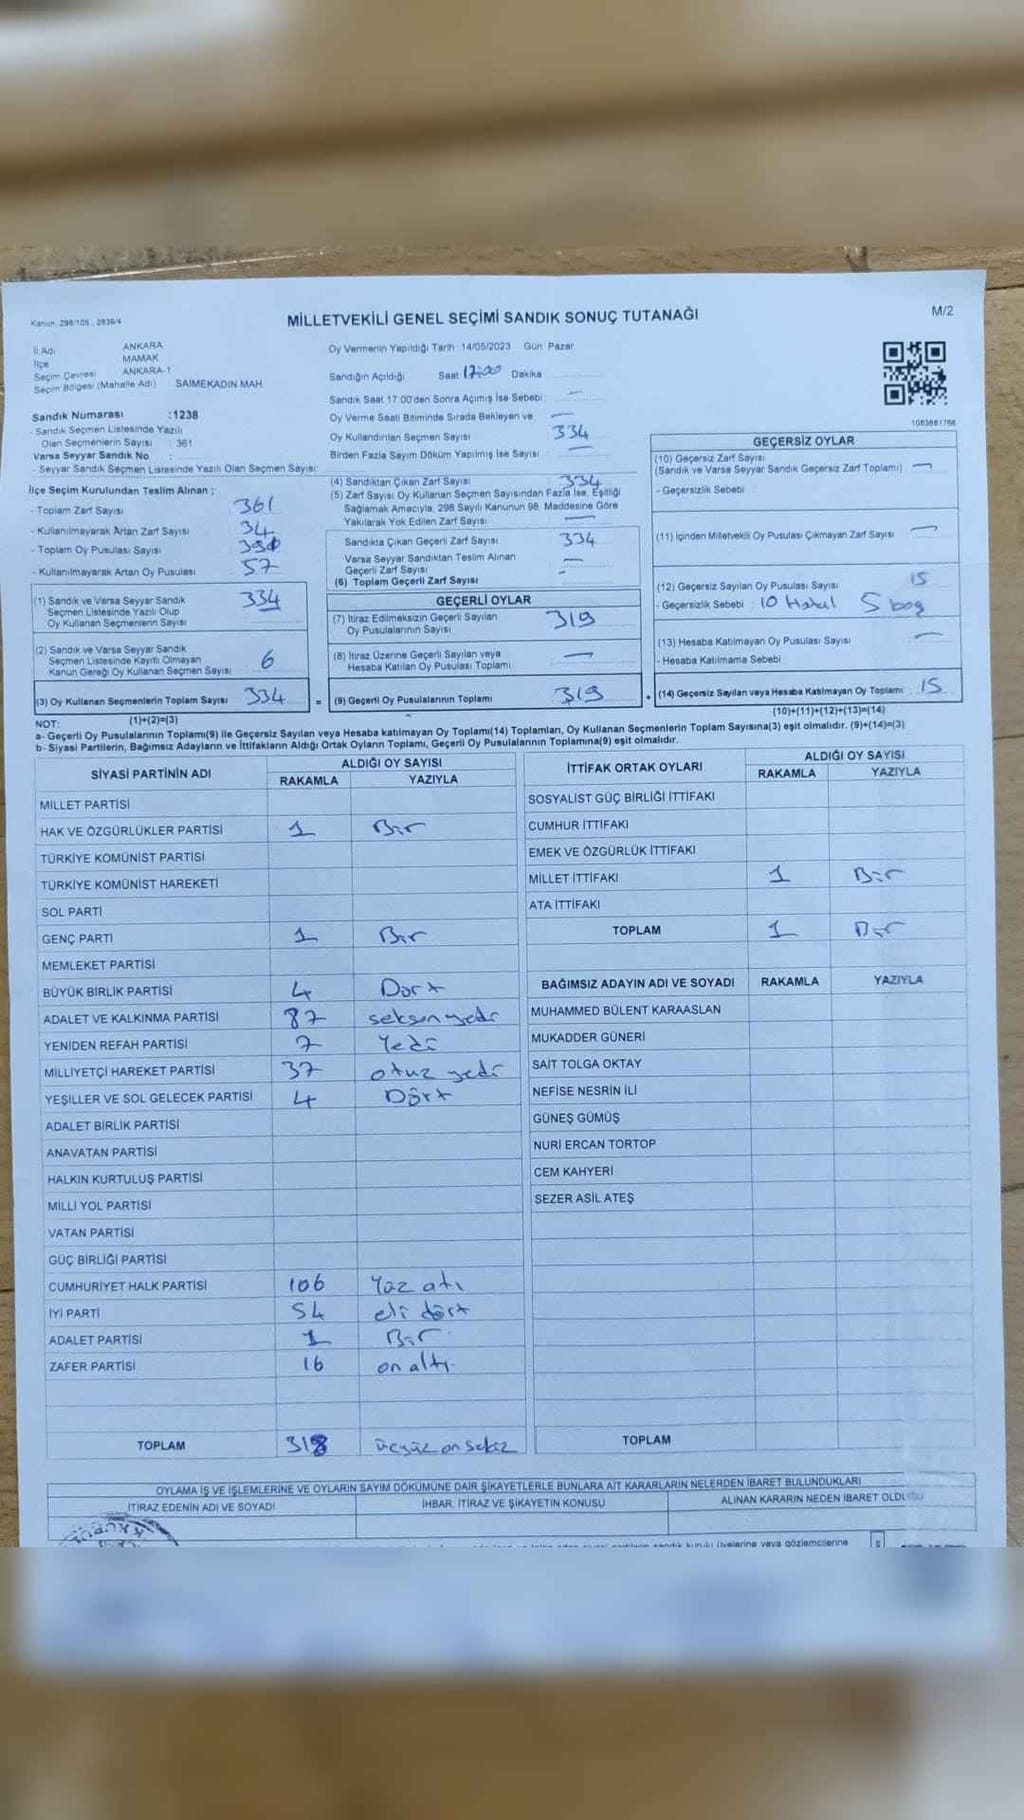 Kanun. 298/105 , 2839/4
MİLLETVEKİLİ GENEL SEÇİMİ SANDIK SONUÇ TUTANAĞI
M/2
İl Adı ANKARA
İlçe MAMAK
Seçim Çevresi ANKARA-1
Seçim Bölgesi (Mahalle Adı) SAİMEKADIN MAH.
Sandık Numarası :1238
- Sandık Seçmen Listesinde Yazılı
Olan Seçmenlerin Sayısı : 361
Varsa Seyyar Sandık No :
- Seyyar Sandık Seçmen Listesinde Yazılı Olan Seçmen Sayısı:
İlçe Seçim Kurulundan Teslim Alınan :
- Toplam Zarf Sayısı 361
- Kullanılmayarak Artan Zarf Sayısı 34
- Toplam Oy Pusulası Sayısı
- Kullanılmayarak Artan Oy Pusulası 57
(1) Sandık ve Varsa Seyyar Sandık 334
Seçmen Listesinde Yazılı Olup
Oy Kullanan Seçmenlerin Sayısı
(2) Sandık ve Varsa Seyyar Sandık
Seçmen Listesinde Kayıtlı Olmayan 6
Kanun Gereği Oy Kullanan Seçmen Sayısı
(3) Oy Kullanan Seçmenlerin Toplam Sayısı 334
(1)+(2)=(3)
Oy Vermenin Yapıldığı Tarih :14/05/2023 Gün: Pazar
Sandığın Açıldığı Saat 17:00 Dakika
Sandık Saat 17:00'den Sonra Açılmış İse Sebebi : —
Oy Verme Saati Bitiminde Sırada Bekleyen ve —
Oy Kullandırılan Seçmen Sayısı 334
Birden Fazla Sayım Döküm Yapılmış İse Sayısı —
(4) Sandıktan Çıkan Zarf Sayısı 334
(5) Zarf Sayısı Oy Kullanan Seçmen Sayısından Fazla İse, Eşitliği
Sağlamak Amacıyla, 298 Sayılı Kanunun 98. Maddesine Göre
Yakılarak Yok Edilen Zarf Sayısı —
Sandıkta Çıkan Geçerli Zarf Sayısı 334
Varsa Seyyar Sandıktan Teslim Alınan
Geçerli Zarf Sayısı —
(6) Toplam Geçerli Zarf Sayısı
GEÇERLİ OYLAR
(7) İtiraz Edilmeksizin Geçerli Sayılan 319
Oy Pusulalarının Sayısı
(8) İtiraz Üzerine Geçerli Sayılan veya —
Hesaba Katılan Oy Pusulası Toplamı
= (9) Geçerli Oy Pusulalarının Toplamı 319
1083661766
GEÇERSİZ OYLAR
(10) Geçersiz Zarf Sayısı
(Sandık ve Varsa Seyyar Sandık Geçersiz Zarf Toplamı) —
- Geçersizlik Sebebi :
(11) İçinden Milletvekili Oy Pusulası Çıkmayan Zarf Sayısı —
(12) Geçersiz Sayılan Oy Pusulası Sayısı 15
- Geçersizlik Sebebi : 10 Hatal 5 boş
(13) Hesaba Katılmayan Oy Pusulası Sayısı —
- Hesaba Katılmama Sebebi
+ (14) Geçersiz Sayılan veya Hesaba Katılmayan Oy Toplamı : 15
(10)+(11)+(12)+(13)=(14)
NOT:
a- Geçerli Oy Pusulalarının Toplamı(9) ile Geçersiz Sayılan veya Hesaba katılmayan Oy Toplamı(14) Toplamları, Oy Kullanan Seçmenlerin Toplam Sayısına(3) eşit olmalıdır. (9)+(14)=(3)
b- Siyasi Partilerin, Bağımsız Adayların ve İttifakların Aldığı Ortak Oyların Toplamı, Geçerli Oy Pusulalarının Toplamına(9) eşit olmalıdır.
SİYASİ PARTİNİN ADI ALDIĞI OY SAYISI
RAKAMLA YAZIYLA
MİLLET PARTİSİ
HAK VE ÖZGÜRLÜKLER PARTİSİ 1 Bir
TÜRKİYE KOMÜNİST PARTİSİ
TÜRKİYE KOMÜNİST HAREKETİ
SOL PARTİ
GENÇ PARTİ 1 Bir
MEMLEKET PARTİSİ
BÜYÜK BİRLİK PARTİSİ 4 Dört
ADALET VE KALKINMA PARTİSİ 87 seksen yedi
YENİDEN REFAH PARTİSİ 7 Yedi
MİLLİYETÇİ HAREKET PARTİSİ 37 otuz yedi
YEŞİLLER VE SOL GELECEK PARTİSİ 4 Dört
ADALET BİRLİK PARTİSİ
ANAVATAN PARTİSİ
HALKIN KURTULUŞ PARTİSİ
MİLLİ YOL PARTİSİ
VATAN PARTİSİ
GÜÇ BİRLİĞİ PARTİSİ
CUMHURİYET HALK PARTİSİ 106 Yüz atı
İYİ PARTİ 54 eli dört
ADALET PARTİSİ 1 Bir
ZAFER PARTİSİ 16 on altı
TOPLAM 318 üçyüz on sekiz
İTTİFAK ORTAK OYLARI ALDIĞI OY SAYISI
RAKAMLA YAZIYLA
SOSYALİST GÜÇ BİRLİĞİ İTTİFAKI
CUMHUR İTTİFAKI
EMEK VE ÖZGÜRLÜK İTTİFAKI
MİLLET İTTİFAKI 1 Bir
ATA İTTİFAKI
TOPLAM 1 Bir
BAĞIMSIZ ADAYIN ADI VE SOYADI RAKAMLA YAZIYLA
MUHAMMED BÜLENT KARAASLAN
MUKADDER GÜNERİ
SAİT TOLGA OKTAY
NEFİSE NESRİN İLİ
GÜNEŞ GÜMÜŞ
NURİ ERCAN TORTOP
CEM KAHYERİ
SEZER ASİL ATEŞ
TOPLAM
OYLAMA İŞ VE İŞLEMLERİNE VE OYLARIN SAYIM DÖKÜMÜNE DAİR ŞİKAYETLERLE BUNLARA AİT KARARLARIN NELERDEN İBARET BULUNDUKLARI
İTİRAZ EDENİN ADI VE SOYADI İHBAR, İTİRAZ VE ŞİKAYETİN KONUSU ALINAN KARARIN NEDEN İBARET